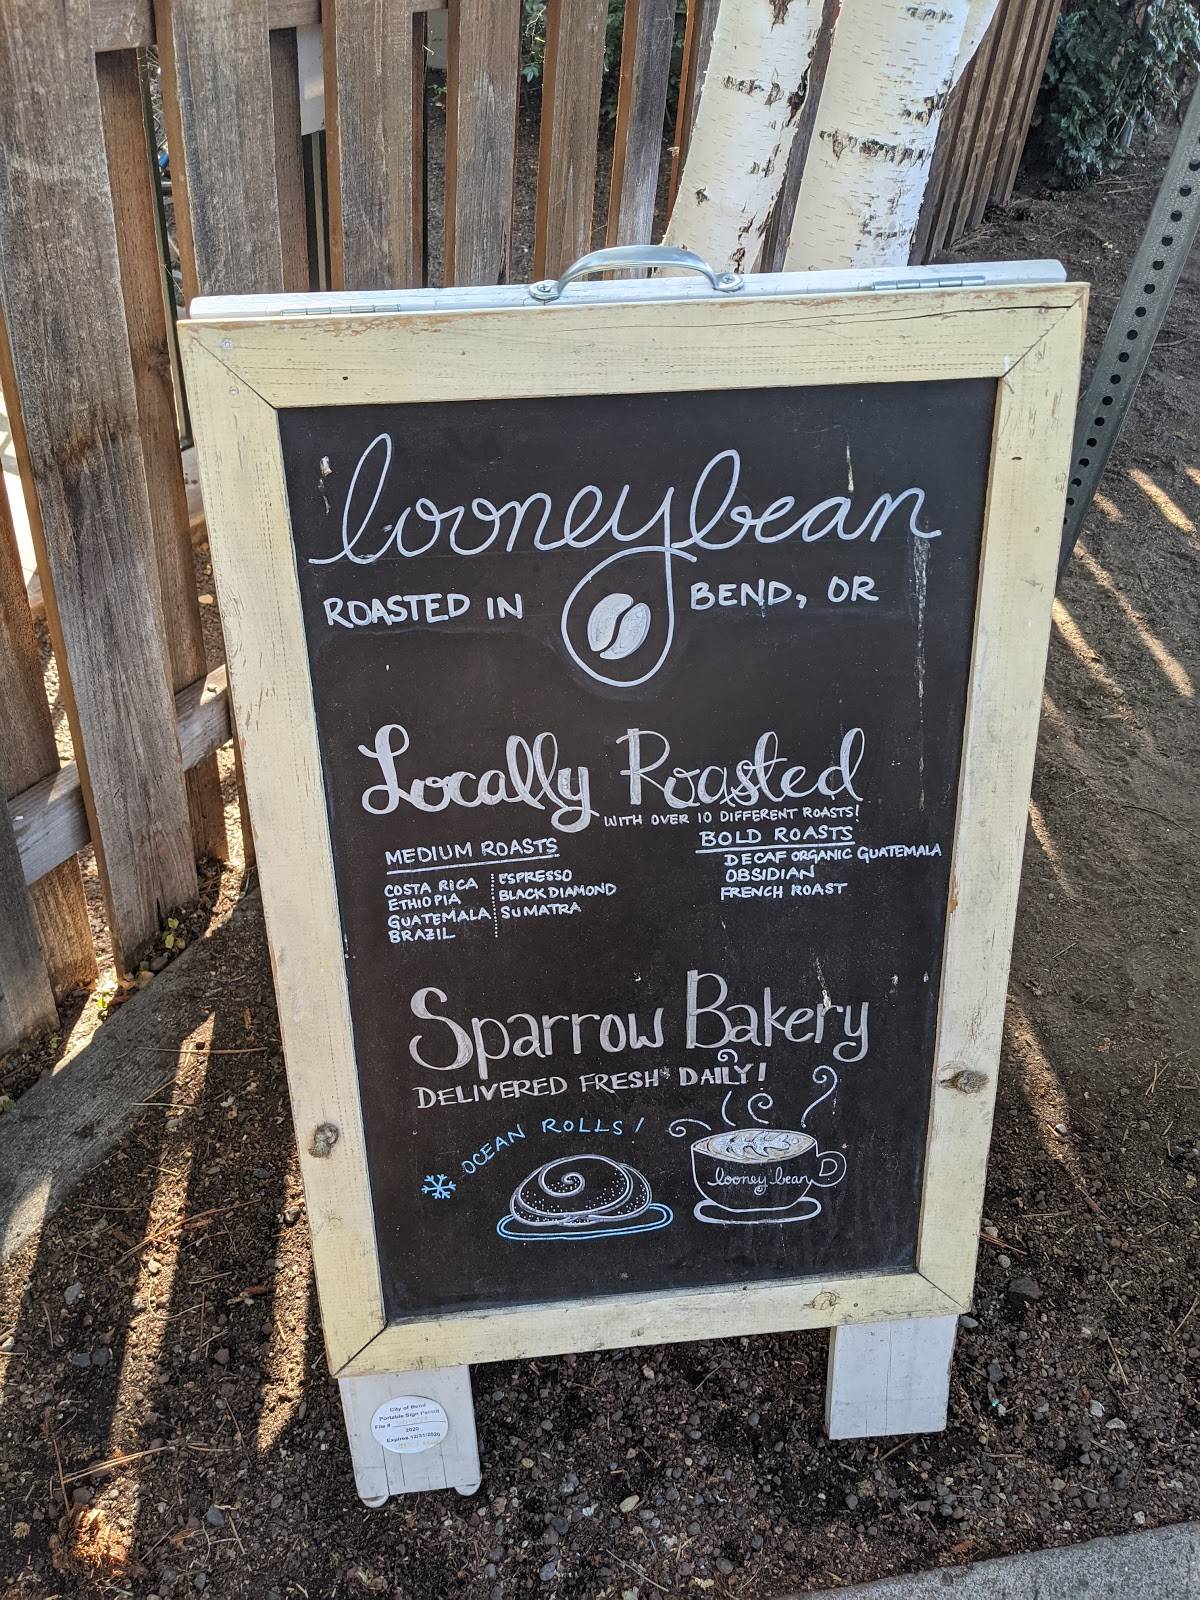 looneybean
ROASTED IN BEND, OR
Locally Roasted
WITH OVER 10 DIFFERENT ROASTS!
MEDIUM ROASTS
COSTA RICA
ETHIOPIA
GUATEMALA
BRAZIL
ESPRESSO
BLACK DIAMOND
SUMATRA
BOLD ROASTS
DECAF ORGANIC GUATEMALA
OBSIDIAN
FRENCH ROAST
Sparrow Bakery
DELIVERED FRESH DAILY!
OCEAN ROLLS!
looney bean
City of Bend
Portable Sign Permit
File #
2020
Expires 12/31/2020